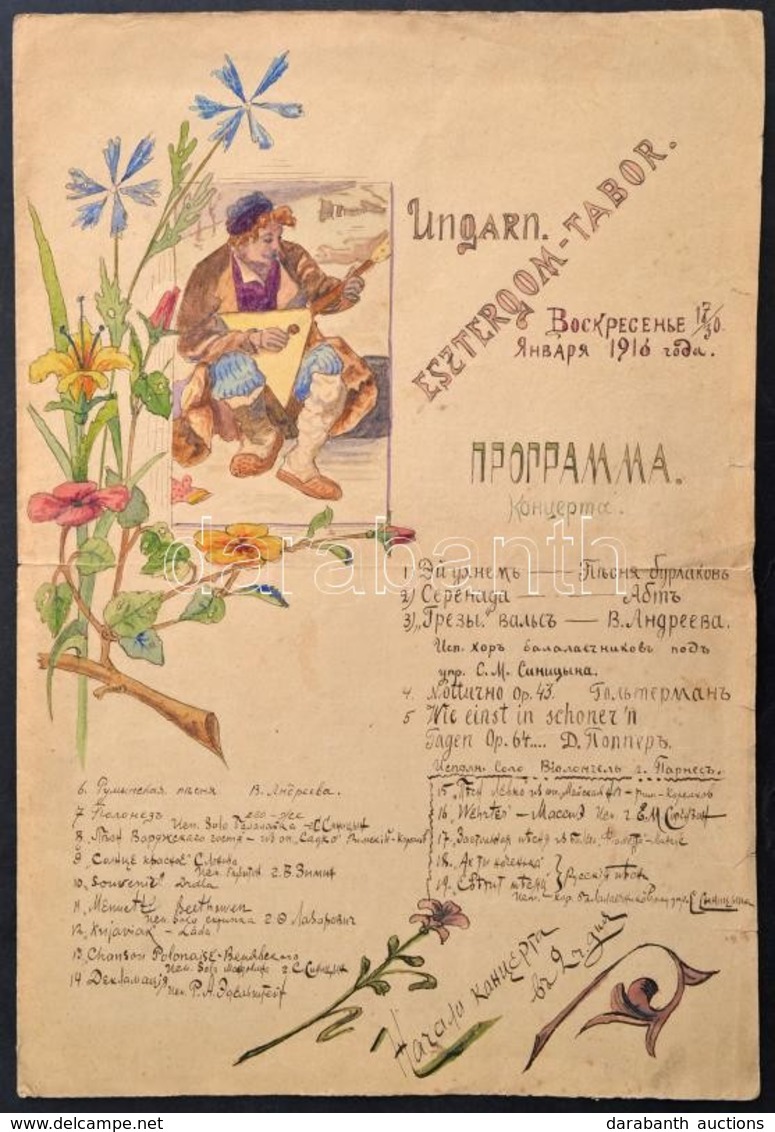 Ungarn.
ESZTERGOM-TABOR.
Воскресенье 17/30.
Января 1916 года.
ПРОГРАММА.
Концерта.
1) Эй ухнемъ — Пѣсня бурлаковъ
2) Серенада — Абтъ
3) „Грезы" вальсъ — В. Андреева.
Исп. хоръ балалаечниковъ подъ
упр. С. М. Синицына.
4. Notturno Op. 43. Гольтерманъ
5 Wie einst in schoner'n
Tagen Op. 64.... Д. Попперъ.
Исполн. Соло Віолончель г. Парнесъ.
6. Румынская пѣсня В. Андреева.
7 Полонезъ его-же
Исп. Solo Балалайка С. Синицын
8. Пѣсн Варяжского гостя - из оп. „Садко" Римскій-Корсак
9. Солнце красное Слонова
Исп. г. В. Зимин
10. Souvenir Drdla
11. Menuett Beethowen
Исп. Solo скрипка г. Ф Лазарович
12. Kujaviak -
13. Chanson Polonaise - Венявского
Исп. Solo г. С. Синицын
14. Декламація
Исп. Р. А. Эдельштейн
15. Пѣсн Левко из оп. Майская н - Рим-Корсаков
16. „Wehrter" - Массне Исп. г. Е. М.
17. Застольная пѣсня
18. „Ах ты ноченька"
19. „Свѣтит мѣсяц" } Русскія пѣсн
Исп. хор балалаечников под упр. С. Синицына
Начало концерта
въ 2 ч дня
darabanth
darabanth auctions